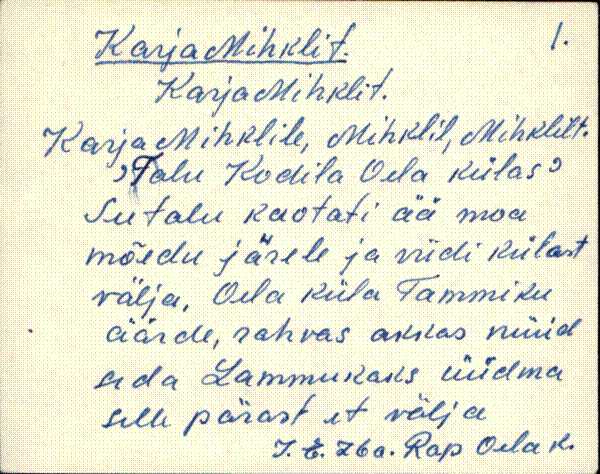 1.
KarjaMihklit.
KarjaMihklit.
KarjaMihklile, Mihklil, Mihklilt.
Talu Kodila Oela külas
Su talu kaotati ää moa
mõedu järele ja viidi külast
välja, Oela küla Tammiku
äärde, rahvas akkas nüüd
seda Lammukaks üüdma
selle pärast et välja
J. E. 76a. Rap Oela k.